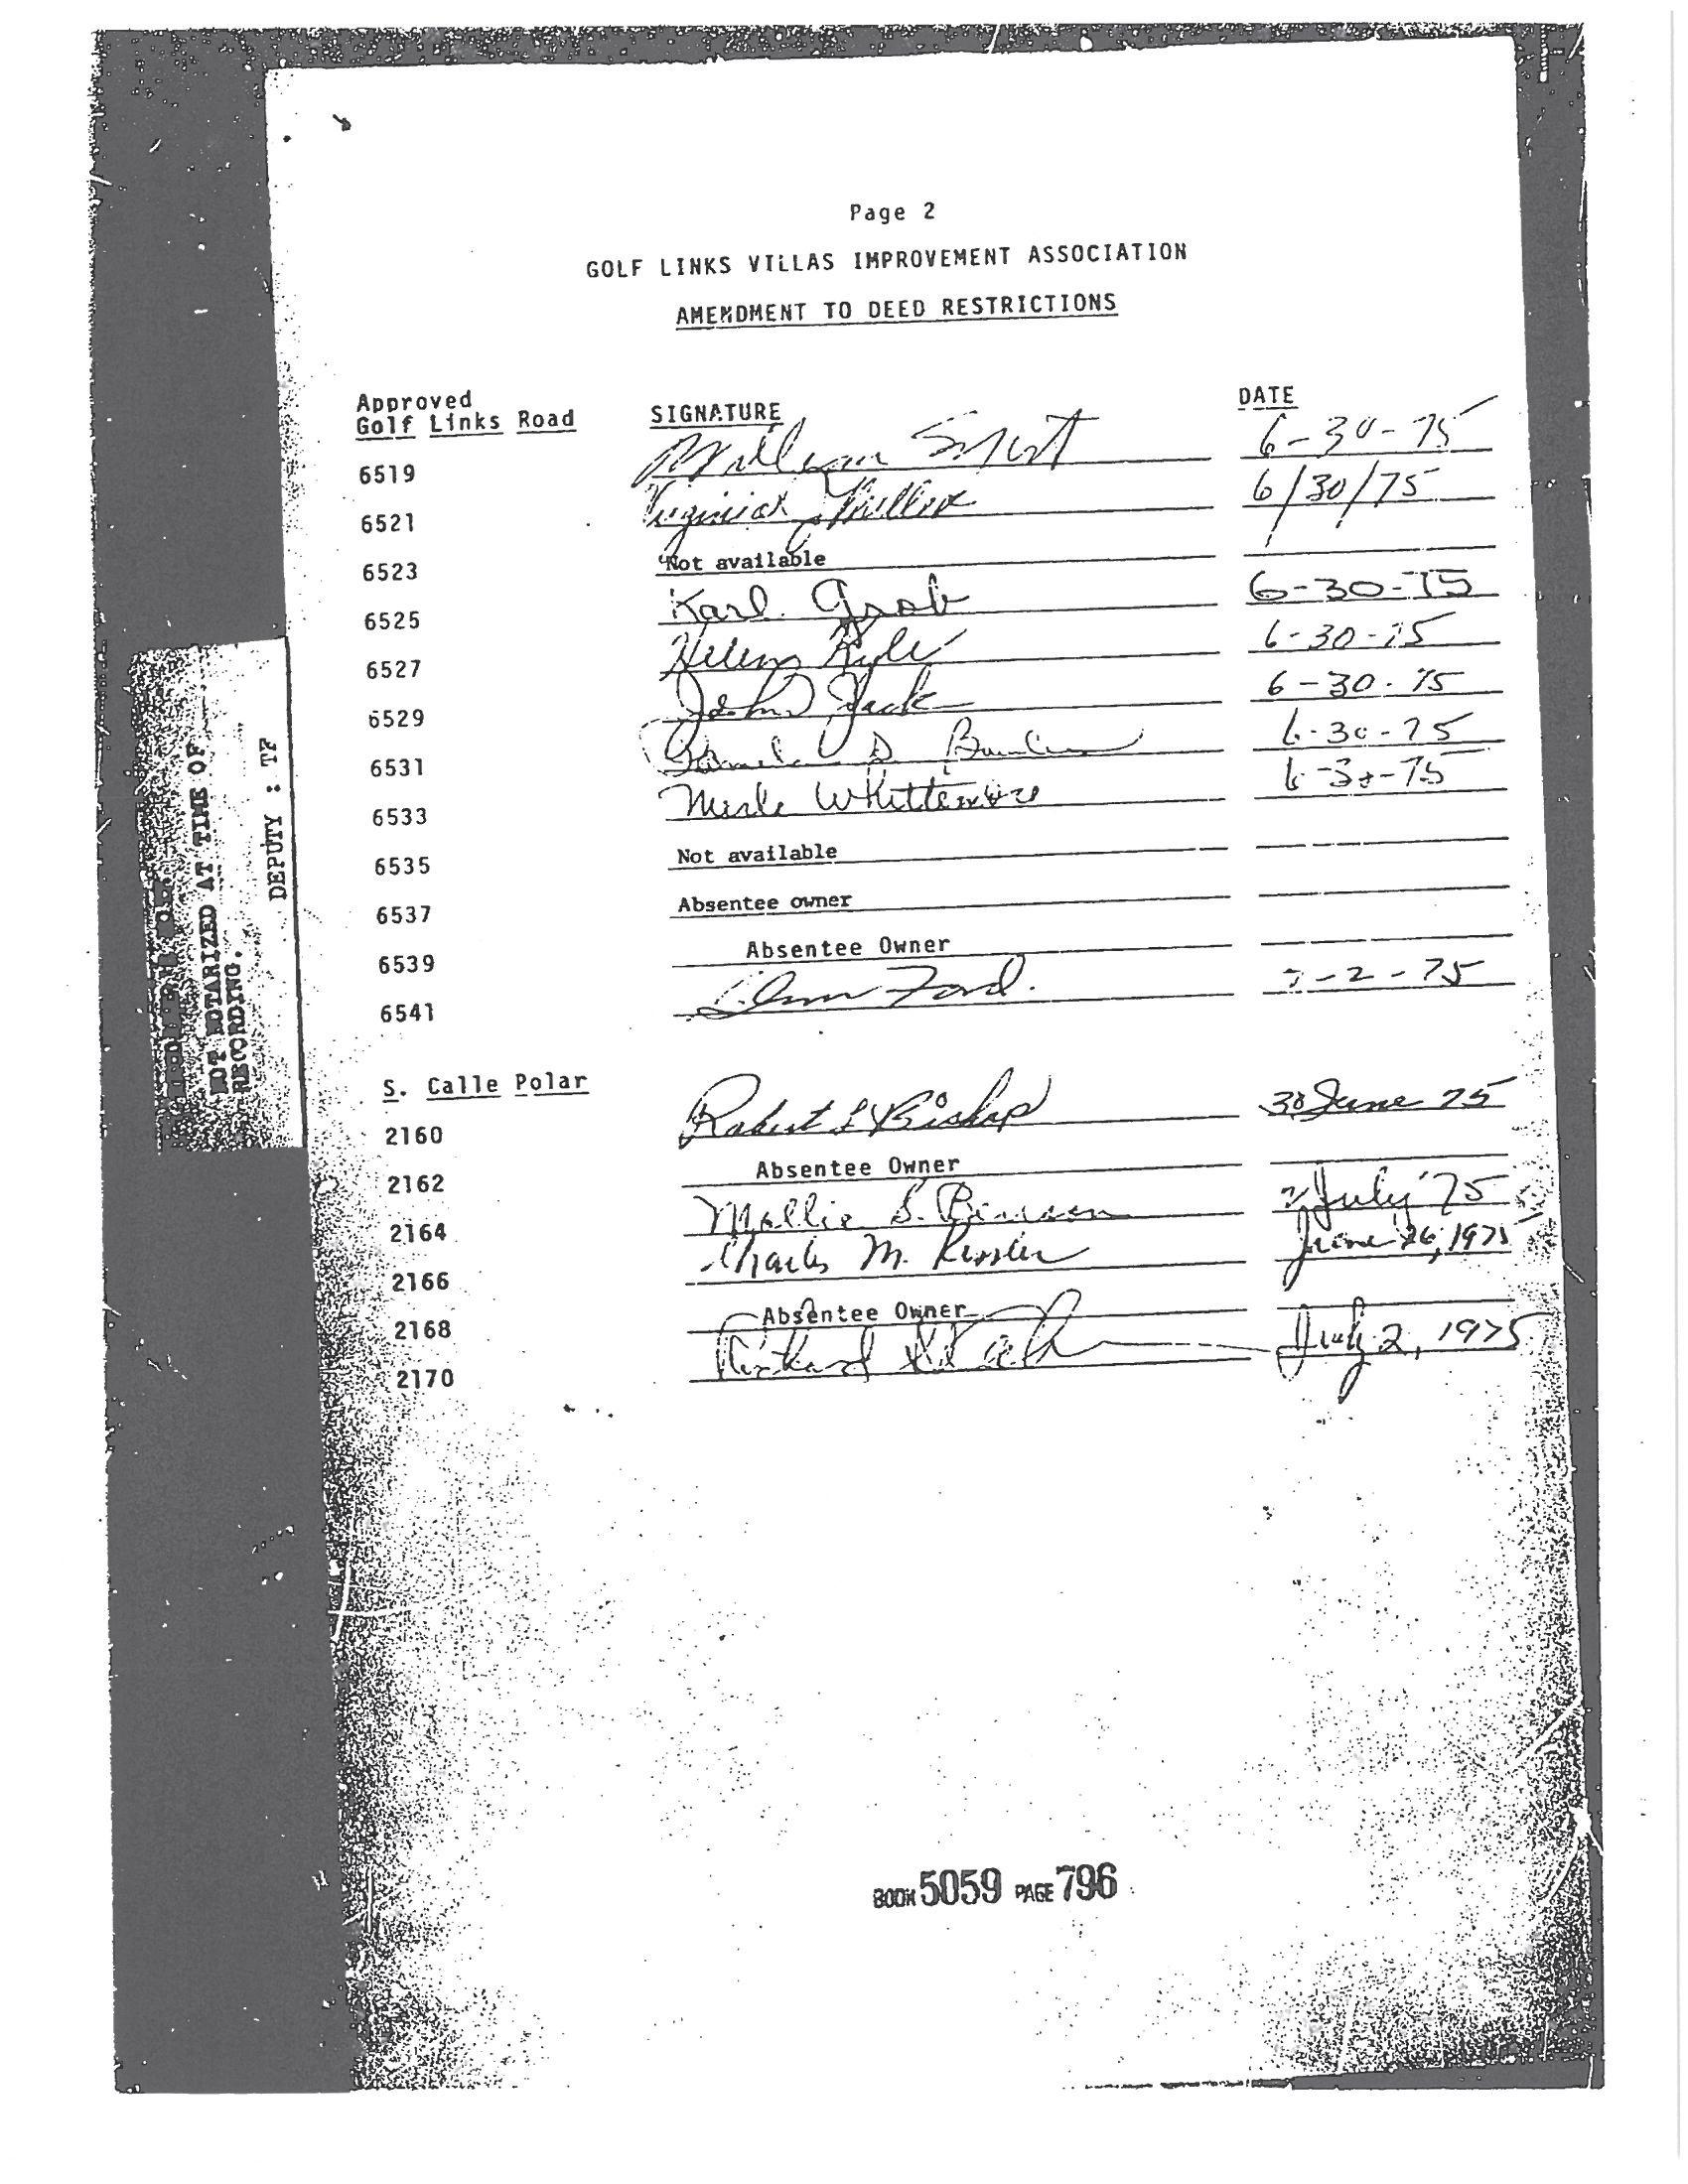 Page 2
GOLF LINKS VILLAS IMPROVEMENT ASSOCIATION
AMENDMENT TO DEED RESTRICTIONS
Approved
Golf Links Road SIGNATURE DATE
6519 William 6-30-75
6521 Virginia Miller 6/30/75
6523 Not available
6525 Karl Grob 6-30-75
6527 Helen Kyle 6-30-75
6529 John Jack 6-30-75
6531 D. 6-30-75
6533 Merle Whittemore 6-30-75
6535 Not available
6537 Absentee owner
6539 Absentee Owner
6541 Glenn Ford. 7-2-75
S. Calle Polar
2160 Robert L Bishop 30 June 75
2162 Absentee Owner
2164 Mollie S. 2 July '75
2166 Charles M. Kessler June 26, 1975
2168 Absentee Owner
2170 Richard July 2, 1975
NOT NOTARIZED AT TIME OF
RECORDING.
DEPUTY : TF
BOOK 5059 PAGE 796